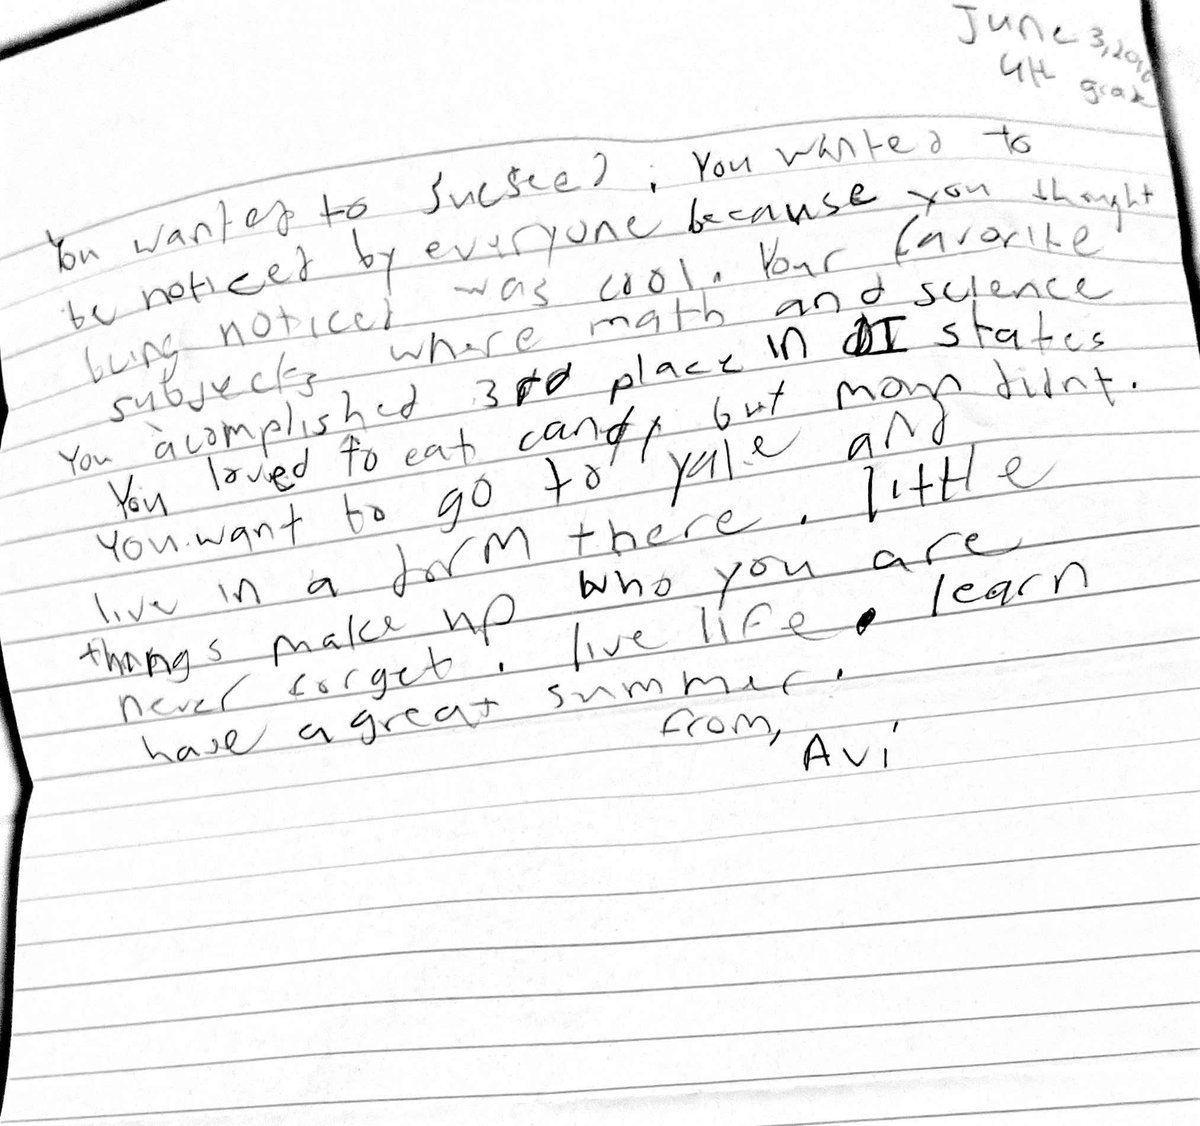 June 3,
4th grade
You wanted to sucseed. You wanted to
be noticed by everyone because you thought
being noticed was cool. Your favorite
subjects where math and science
You acomplished 3rd place in DI states
You loved to eat candy, but mom didnt.
You want to go to yale and
live in a dorm there. little
things make up who you are
never forget. live life. learn
have a great summer.
from,
Avi